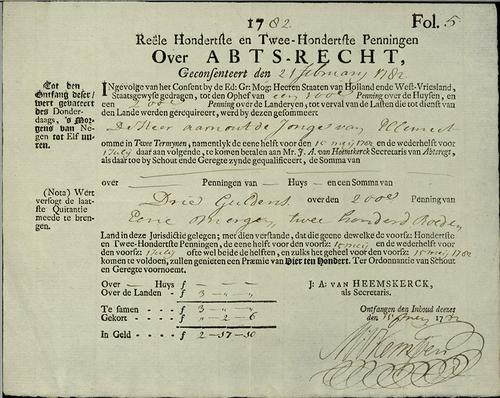 1782. Fol. 5
Reële Hondertste en Twee-Hondertste Penningen
Over ABTS-RECHT,
Geconsenteert den 21 february 1782
Tot den
Ontfang deser
wert gevaceert
des Donder-
daags, 's Mor-
gens van Ne-
gen tot Elf uu-
ren.
INgevolge van het Consent by de Ed: Gr: Mog: Heeren Staaten van Holland ende West-Vriesland,
Staatsgewyse gedragen, tot den Ophef van een 100e Penning over de Huysen, en
een 200e Penning over de Landeryen, tot verval van de Lasten die tot dienst van
den Lande werden gerequireert, werd by dezen gesommeert
De Heer Aarnout de Jonge van Ellemeet
omme in Twee Termynen, namentlyk de eene helft voor den 15 meij 1782 en de wederhelft voor den
July daar aan volgende, te komen betalen aan Mr. J. A. van Heemskerck Secretaris van Abtsregt,
als daar toe by Schout ende Geregte zynde gequalificeert, de Somma van
over — Penningen van — Huys — en een Somma van
(Nota) Wert
versogt de laat-
ste Quitantie
mede te bren-
gen.
Drie Guldens over den 200e Penning van
Eene Morgen, twee honderd Roeden
Land in deze Jurisdictie gelegen; met dien verstande, dat die geene dewelke de voorsz: Hondertste
en Twee-Hondertste Penningen, de eene helft voor den voorsz: 15 meij en de wederhelft voor
den voorsz: July ofte wel beide de helften, en zulks het geheel voor den voorsz: 15 meij 1782
komen te voldoen, zullen genieten een Præmie van Vier ten Hondert. Ter Ordonnantie van Schout
en Geregte voornoemt.
Over — Huys ƒ
Over de Landen - ƒ 3 - „ - „
Te samen - - - - ƒ 3 - „ - „
Gekort - - - - - ƒ „ - 2 - 6
In Geld - - - - ƒ 2 - 17 - 10
J: A: VAN HEEMSKERCK,
als Secretaris.
Ontfangen den Inhoud dezes
den 17